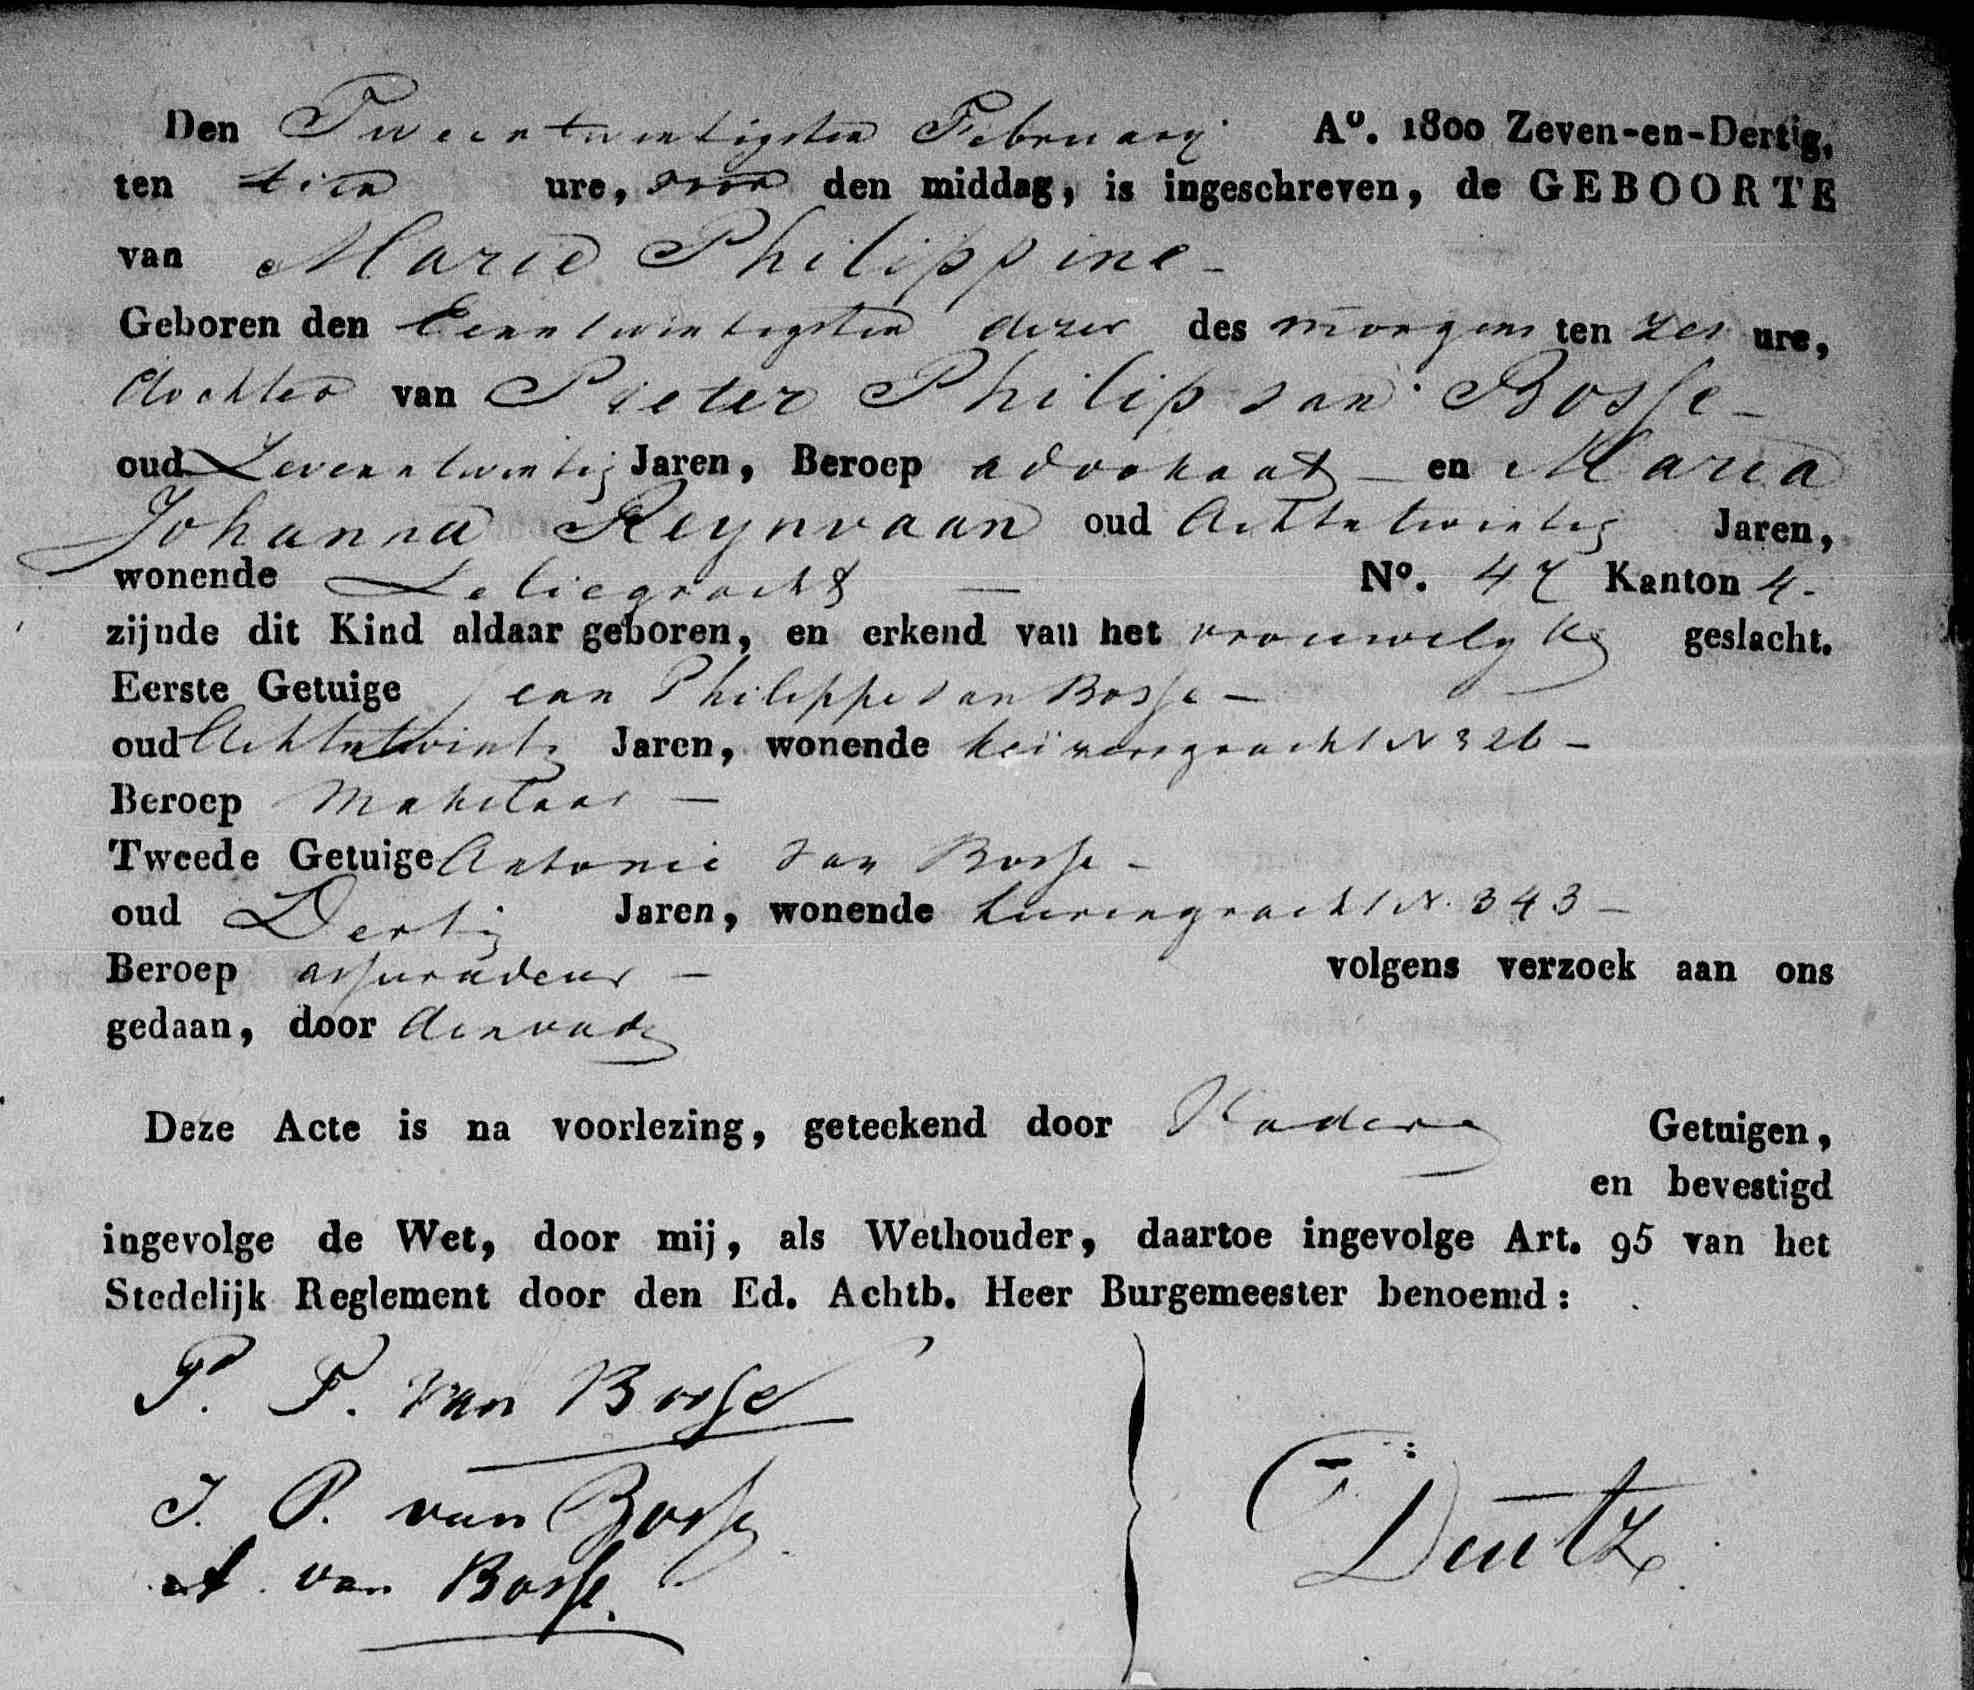 Den Tweentwintigsten February A°. 1800 Zeven-en-Dertig,
ten tien ure, voor den middag, is ingeschreven, de GEBOORTE
van Marie Philippine -
Geboren den Eenentwintigsten dezer des morgens ten zes ure,
dochter van Pieter Philip van Bosse -
oud Zevenentwintig Jaren, Beroep advokaat - en Maria
Johanna Reynvaan oud Achtentwintig Jaren,
wonende Leliegracht - N°. 47 Kanton 4.
zijnde dit Kind aldaar geboren, en erkend van het vrouwelyk geslacht.
Eerste Getuige Jean Philippe van Bosse -
oud Achtentwintig Jaren, wonende keizersgracht N 326 -
Beroep Makelaar -
Tweede Getuige Antonie van Bosse -
oud Dertig Jaren, wonende N. 343 -
Beroep assuradeur -
volgens verzoek aan ons
gedaan, door den vader
Deze Acte is na voorlezing, geteekend door Vader en Getuigen,
en bevestigd
ingevolge de Wet, door mij, als Wethouder, daartoe ingevolge Art. 95 van het
Stedelijk Reglement door den Ed. Achtb. Heer Burgemeester benoemd:
P. P. van Bosse
J. P. van Bosse
A. van Bosse.
Deutz